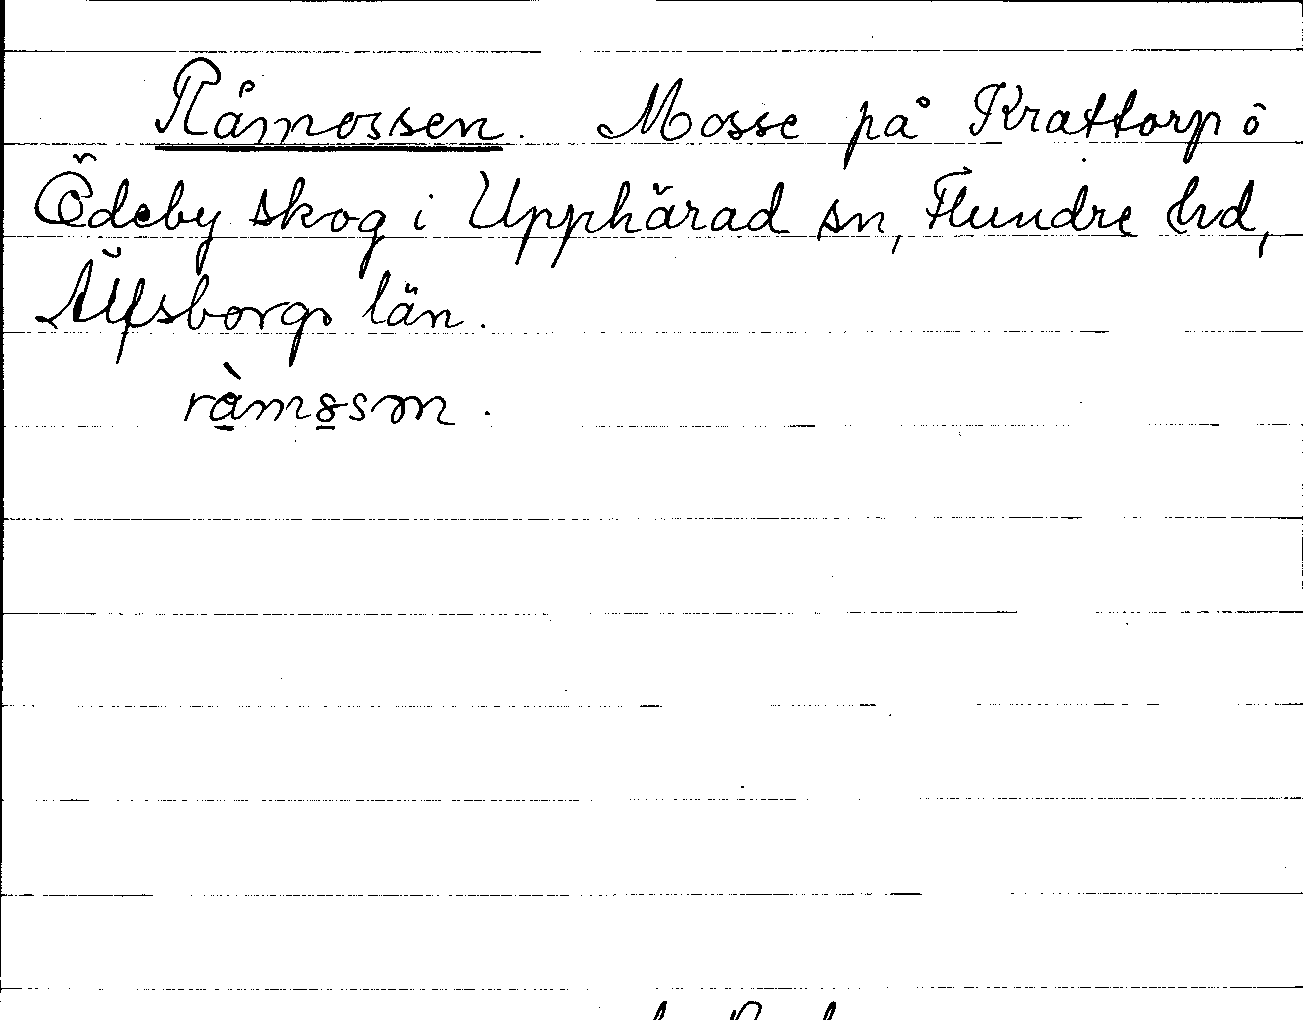 Råmossen. Mosse på Krattorp ö
Ödeby skog i Upphärad sn, Flundre hd,
Älfsborgs län.